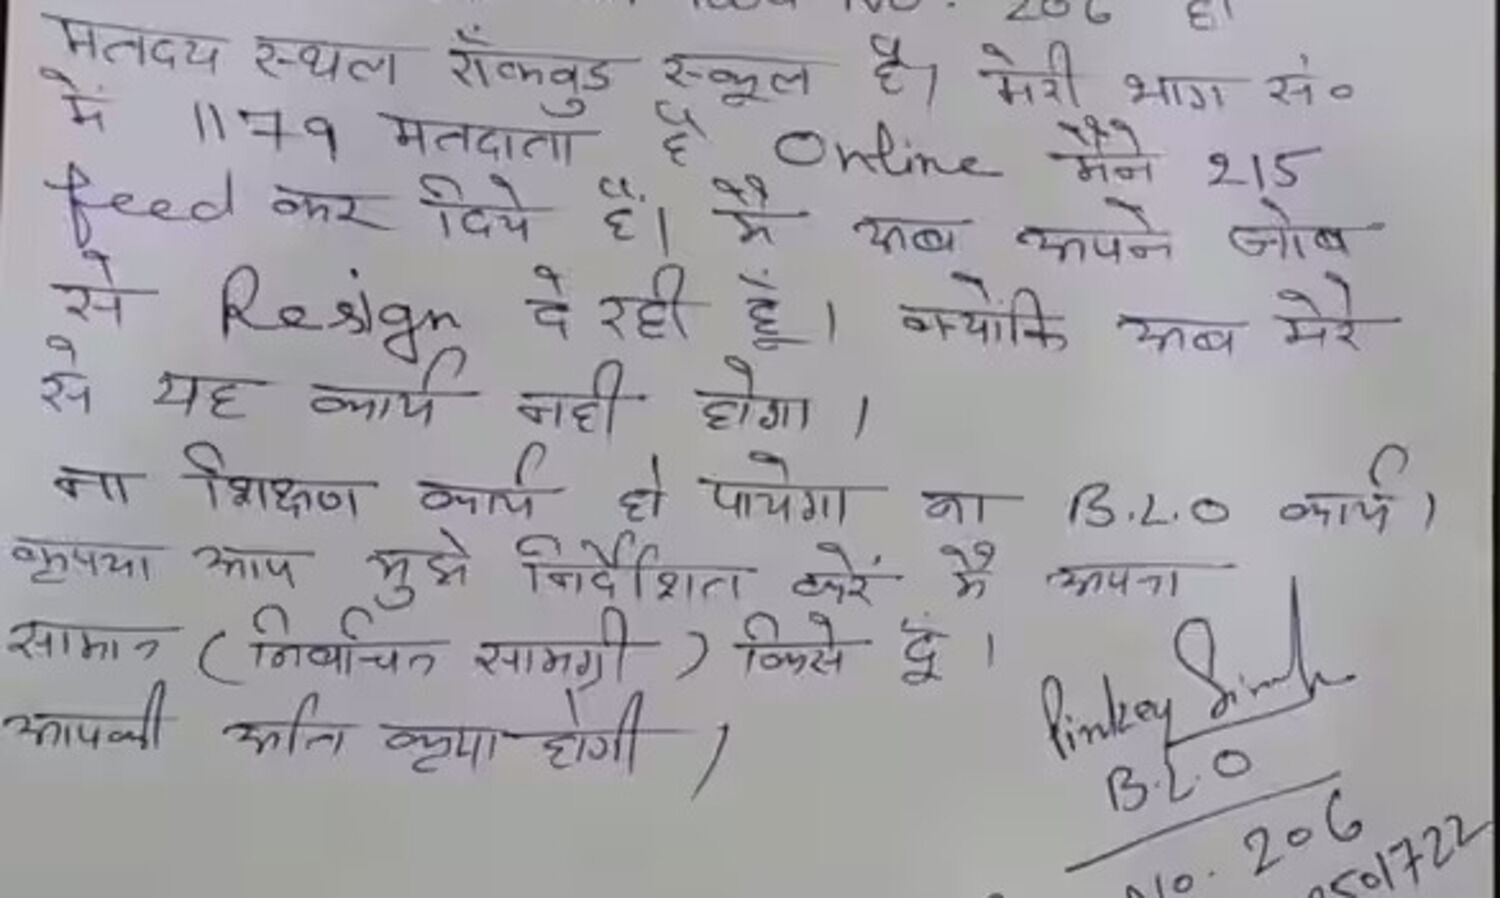 No. 206 है।
मतदय स्थल रॉकवुड स्कूल है। मेरी भाग सं॰
में 1179 मतदाता है Online मैने 215
feed कर दिये हैं। मै अब अपने जोब
से Resign दे रही हूँ। क्योंकि अब मेरे
से यह कार्य नही होगा।
ना शिक्षण कार्य हो पायेगा ना B.L.O कार्य।
कृपया आप मुझे निर्देशित करें मै अपना
सामान (निर्वाचन सामग्री) किसे दूं।
आपकी अति कृपा होगी।
Pinkey Singh
B.L.O
No. 206
501722